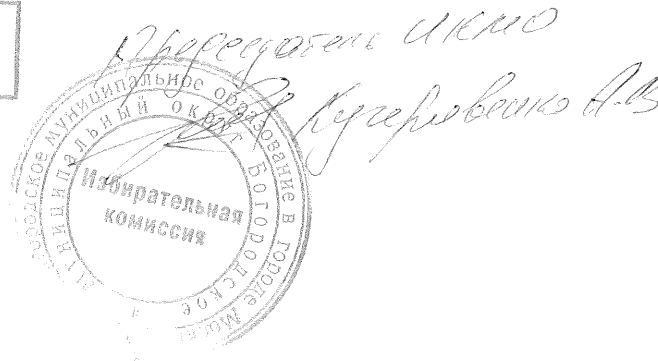 Председатель ИКМО
Кучерявенко А.В
городское муниципальное образование в городе Москве
муниципальный округ Богородское
Избирательная
комиссия